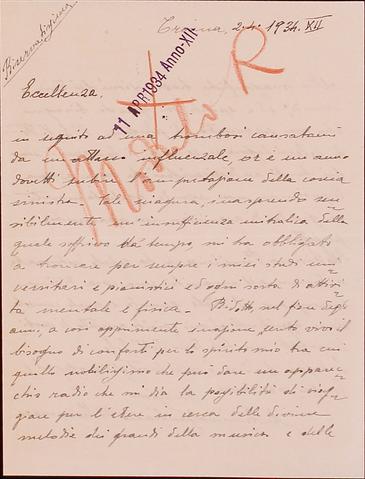 Riservatissima
Troina, 2.4.1934. XII
11 APR 1934 Anno XII
R
Eccellenza.
in seguito ad una trombosi causatami
da un attacco influenzale, or è un anno
dovetti subire l'amputazione della coscia
sinistra. Tale sciagura, inasprendo sen
sibilmente un'insufficienza mitralica della
quale soffrivo da tempo, mi ha obbligato
a troncare per sempre i miei studi uni
versitari e pianistici ed ogni sorta di attivi
tà mentale e fisica. Ridotto, nel fiore degli
anni, a così opprimente inazione, sento vivo il
bisogno di conforti per lo spirito mio tra cui
quello nobilissimo che può dare un apparec
chio radio che mi dia la possibilità di viag
giare per l'etere in cerca delle divine
melodie dei grandi della musica e delle